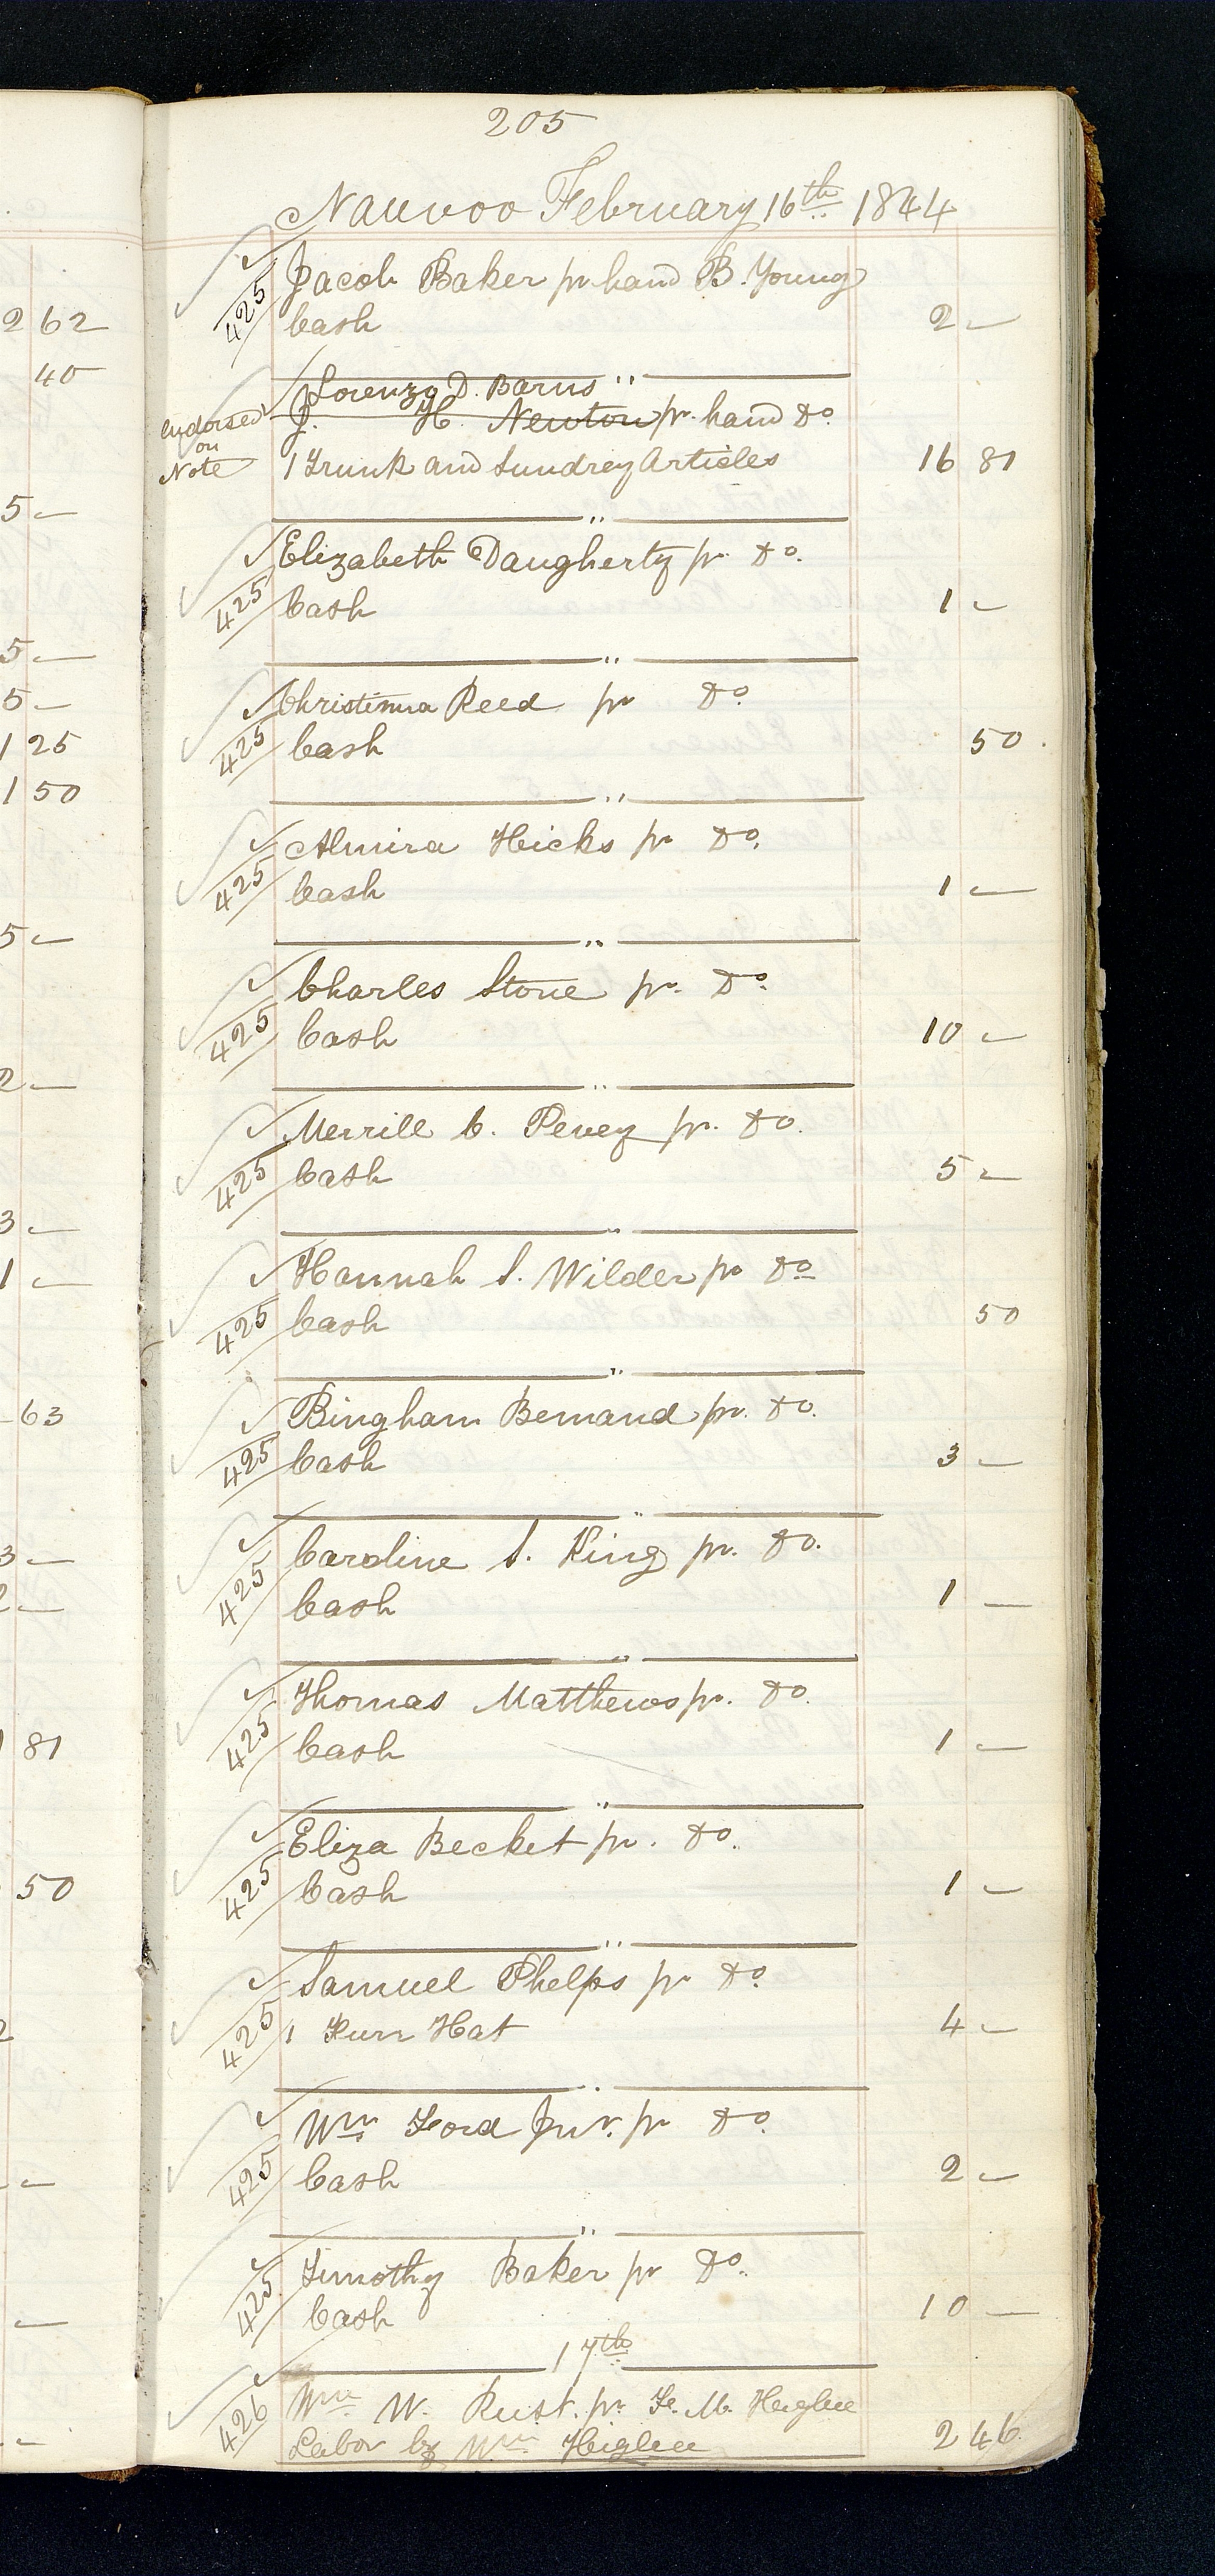 205
Nauvoo February 16th 1844
425 Jacob Baker pr. hand B. Young
Cash 2 —
Lorenzo D. Barns
J. H. Newton pr. hand Do.
Endorsed on Note
1 Trunk and Sundrey Articles 16 81
Elizabeth Daugherty pr. Do.
425 Cash 1 —
Christinna Reed pr Do.
425 Cash 50
Almira Hicks pr Do.
425 Cash 1 —
Charles Stone pr. Do.
425 Cash 10 —
Merrill C. Pevey pr. Do.
425 Cash 5 —
Hannah S. Wilder pr Do
425 Cash 50
Bingham Bemand pr. Do.
425 Cash 3 —
Caroline S. King pr. Do.
425 Cash 1 —
Thomas Matthews pr. Do.
425 Cash 1 —
Eliza Becket pr. Do.
425 Cash 1 —
Samuel Phelps pr Do.
425 1 Furr Hat 4 —
Wm Ford Junr. pr Do.
425 Cash 2 —
Timothy Baker pr Do.
425 Cash 10 —
17th
426 Wm W. Rust. pr. M. Higbee
Labor by Wm Higbee 2 46
2 62
40
5 —
5 —
5 —
1 25
1 50
5 —
2 —
3 —
1 —
63
3 —
2 —
81
50
2